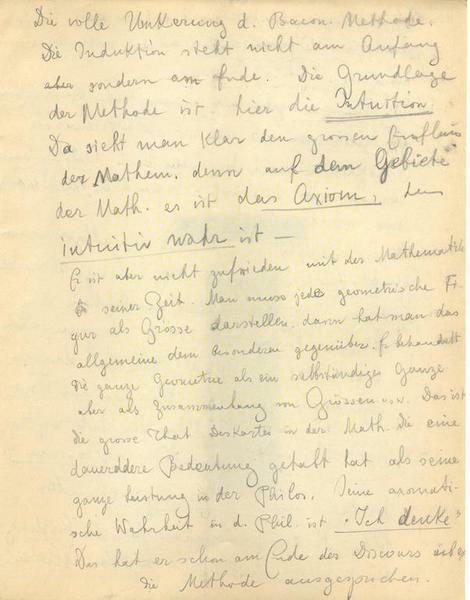 Die volle Umkerung d. Bacon. Methode.
Die Induktion steht nicht am Anfang
aber sondern am Ende. Die Grundlage
der Methode ist hier die Intuition.
Da sieht man klar den grossen Einfluss
der Mathem. denn auf dem Gebiete
der Math. es ist das Axiom,
intuitiv wahr ist —
Er ist aber nicht zufrieden mit der Mathematik
seiner Zeit. Man muss jede geometrische Fi
gur als Grösse darstellen, dann hat man das
allgemeine dem besonderen gegenüber. Er behandelt
die ganze Geometrie als ein selbständiges Ganze
aber als Zusammenhang von Grössen usw. Das ist
die grosse That Deskartes in der Math. die eine
dauerddere Bedeutung gehabt hat als seine
ganze Leistung in der Philos. Seine axomati-
sche Wahrheit in d. Phil. ist "Ich denke"
Das hat er schon am Ende des Discours über
die Methode ausgesprochen.